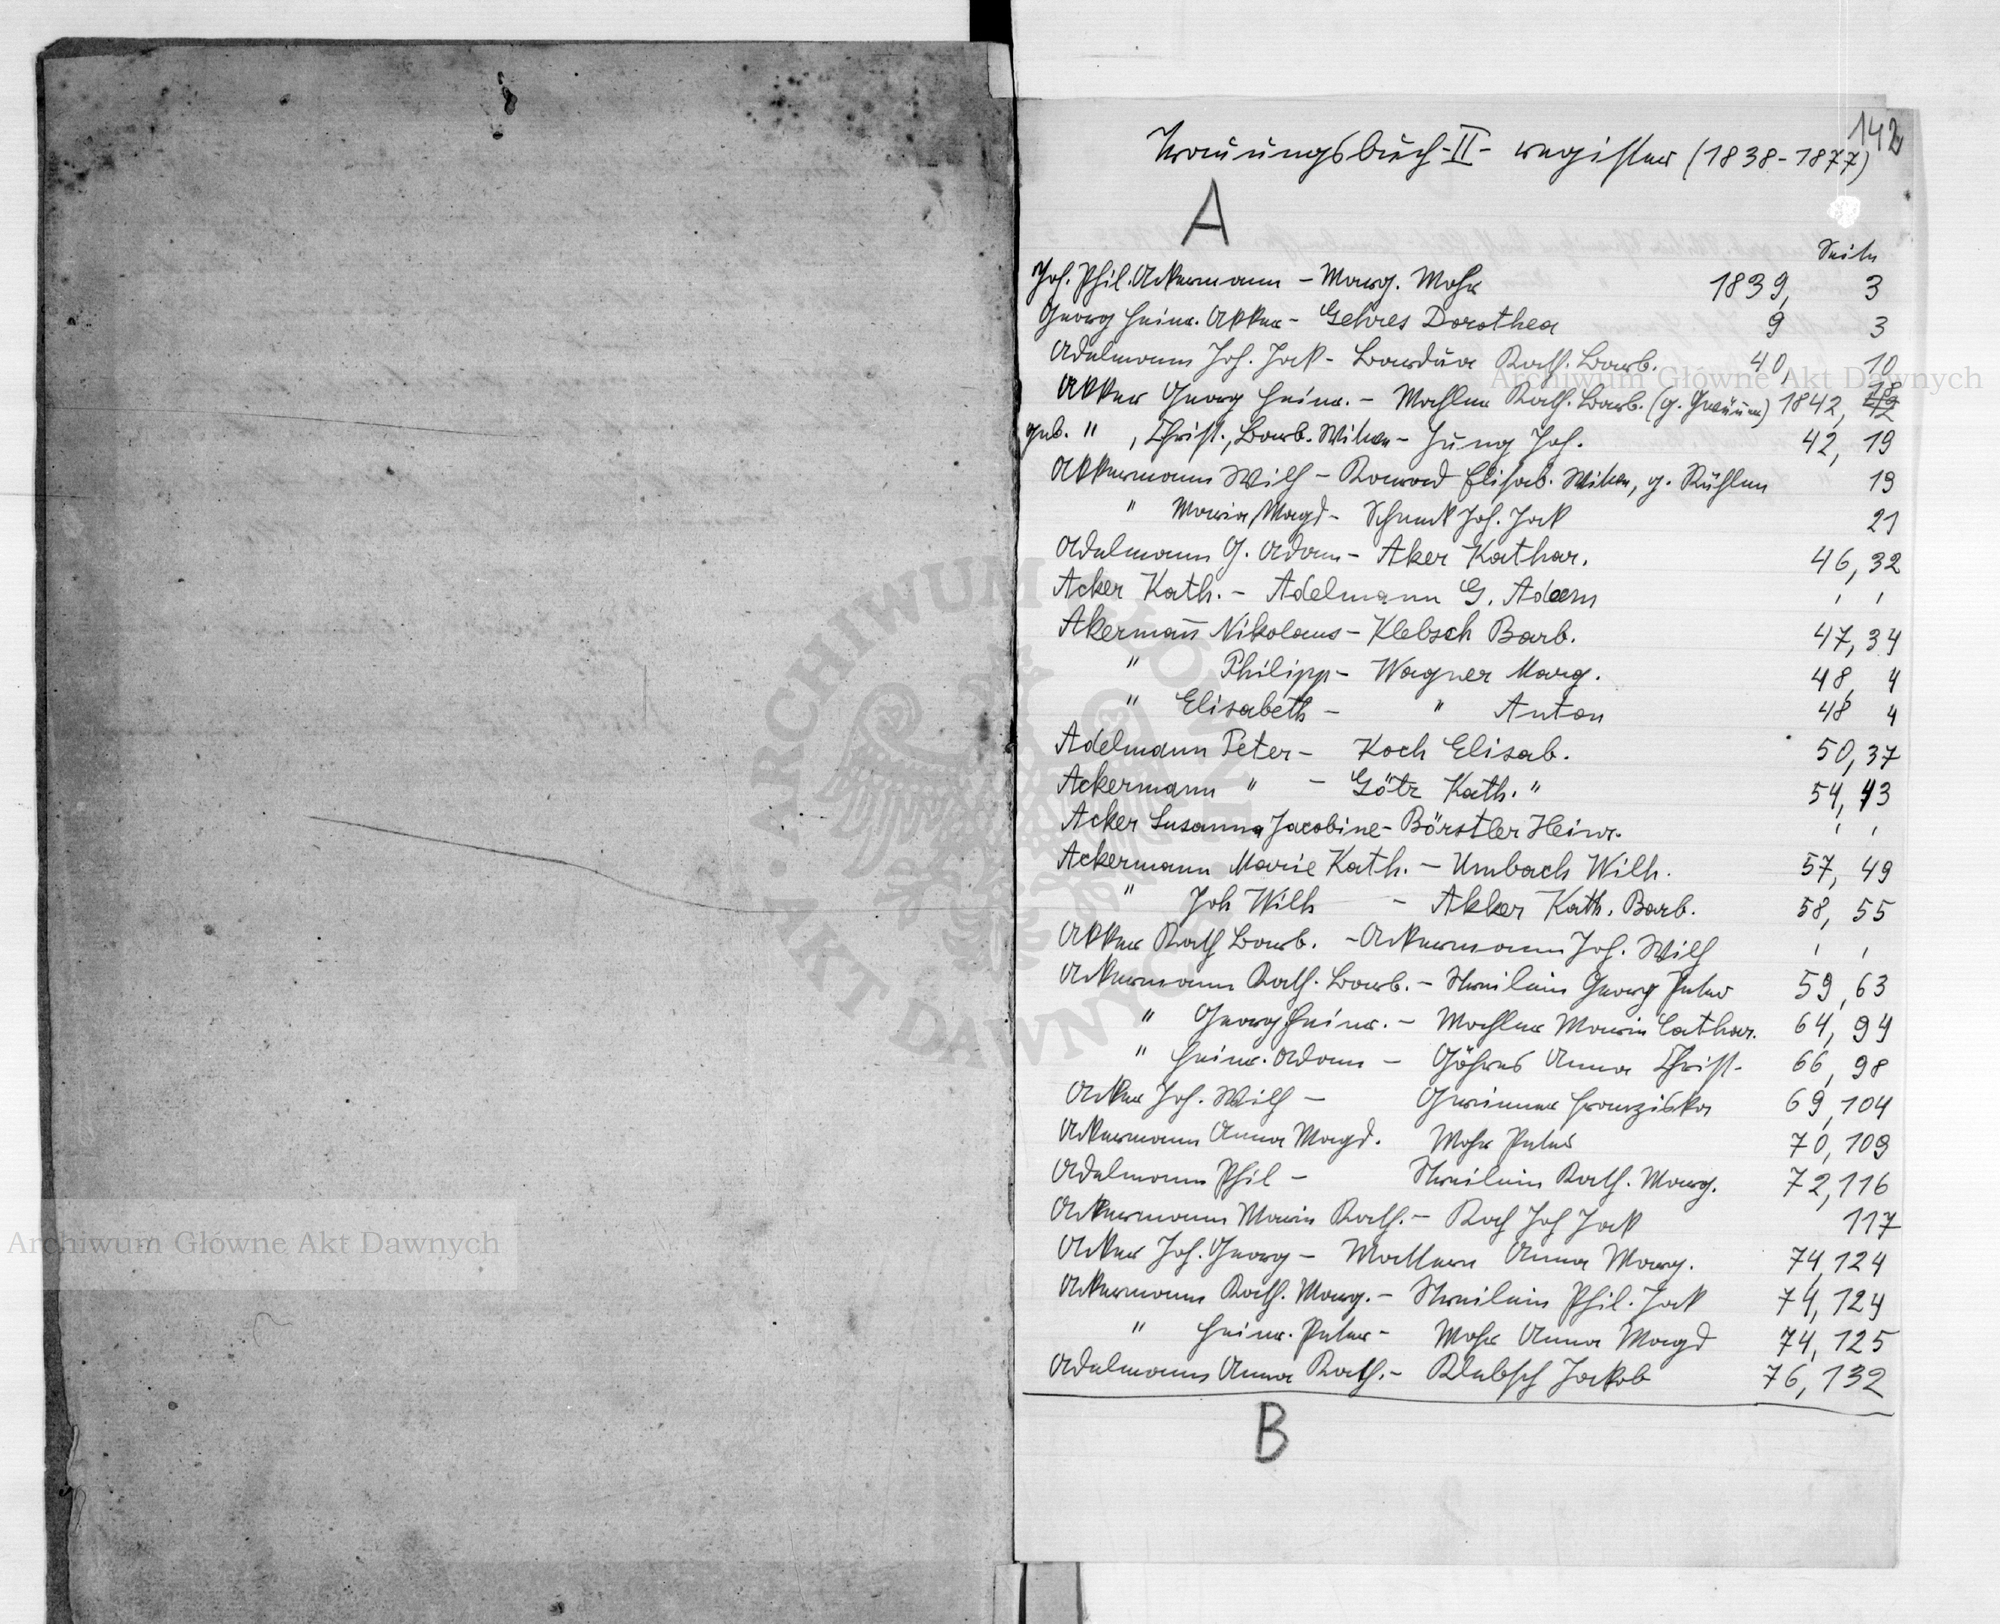 142
Trauungsbuch-II-register (1838-1877)
A
Seite
Joh. Phil. Ackermann - Marg. Mohr 1839, 3
Georg Heinr. Akker - Gehres Dorothea 9 3
Adelmann Joh. Jak - Kath. Barb. 40, 10
Akker Georg Heinr. - Machler Kath. Barb. (g. ) 1842, 18
geb. " , Christ., Barb. Witwe - Jung Joh. 42, 19
Akkermann Wilh - Konrad Elisab. Witwe, g. Kühlen 19
" Maria Magd - Schenk Joh. Jak 21
Adelmann G. Adam - Aker Kathar. 46, 32
Acker Kath. - Adelmann G. Adam ' '
Akermañ Nikolaus - Klebsch Barb. 47, 34
" Philipp - Wagner Marg. 48, 4
" Elisabeth - " Anton 48 4
Adelmann Peter - Koch Elisab. 50, 37
Ackermann " - Götz Kath. " 54, 43
Acker Susanna Jacobine - Börstler Heinr. ' '
Ackermann Marie Kath. - Umbach Wilh. 57, 49
" Joh Wilh - Akker Kath. Barb. 58, 55
Akker Kath Barb. - Ackermann Joh. Wilh ' '
Ackermann Kath. Barb. - Streilein Georg Peter 59, 63
" Georg Heinr. - Machler Maria Cathar. 64, 94
" Heinr. Adam - Göhres Anna Christ. 66, 98
Acker Joh. Wilh - Franziska 69, 104
Ackermann Anna Magd. Mohr Peter 70, 109
Adelmann Phil - Streilein Kath. Marg. 72, 116
Ackermann Maria Kath. - Koch Joh Jak 117
Acker Joh. Georg - Mattern Anna Marg. 74, 124
Ackermann Kath. Marg. - Streilein Phil. Jak 74, 124
" Heinr. Peter - Mohr Anna Magd 74, 125
Adelmann Anna Kath. - Klebsch Jakob 76, 132
B
Archiwum Główne Akt Dawnych
Archiwum Główne Akt Dawnych
ARCHIWUM GŁÓWNE AKT DAWNYCH